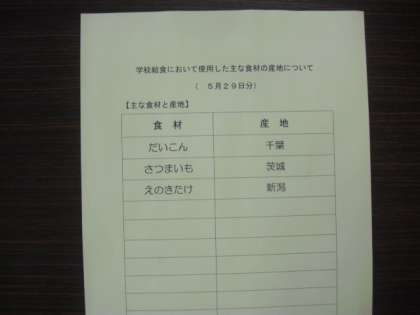 学校給食において使用した主な食材の産地について
（　５月２９日分）
【主な食材と産地】
食　材　産　地
だいこん　千葉
さつまいも　茨城
えのきたけ　新潟